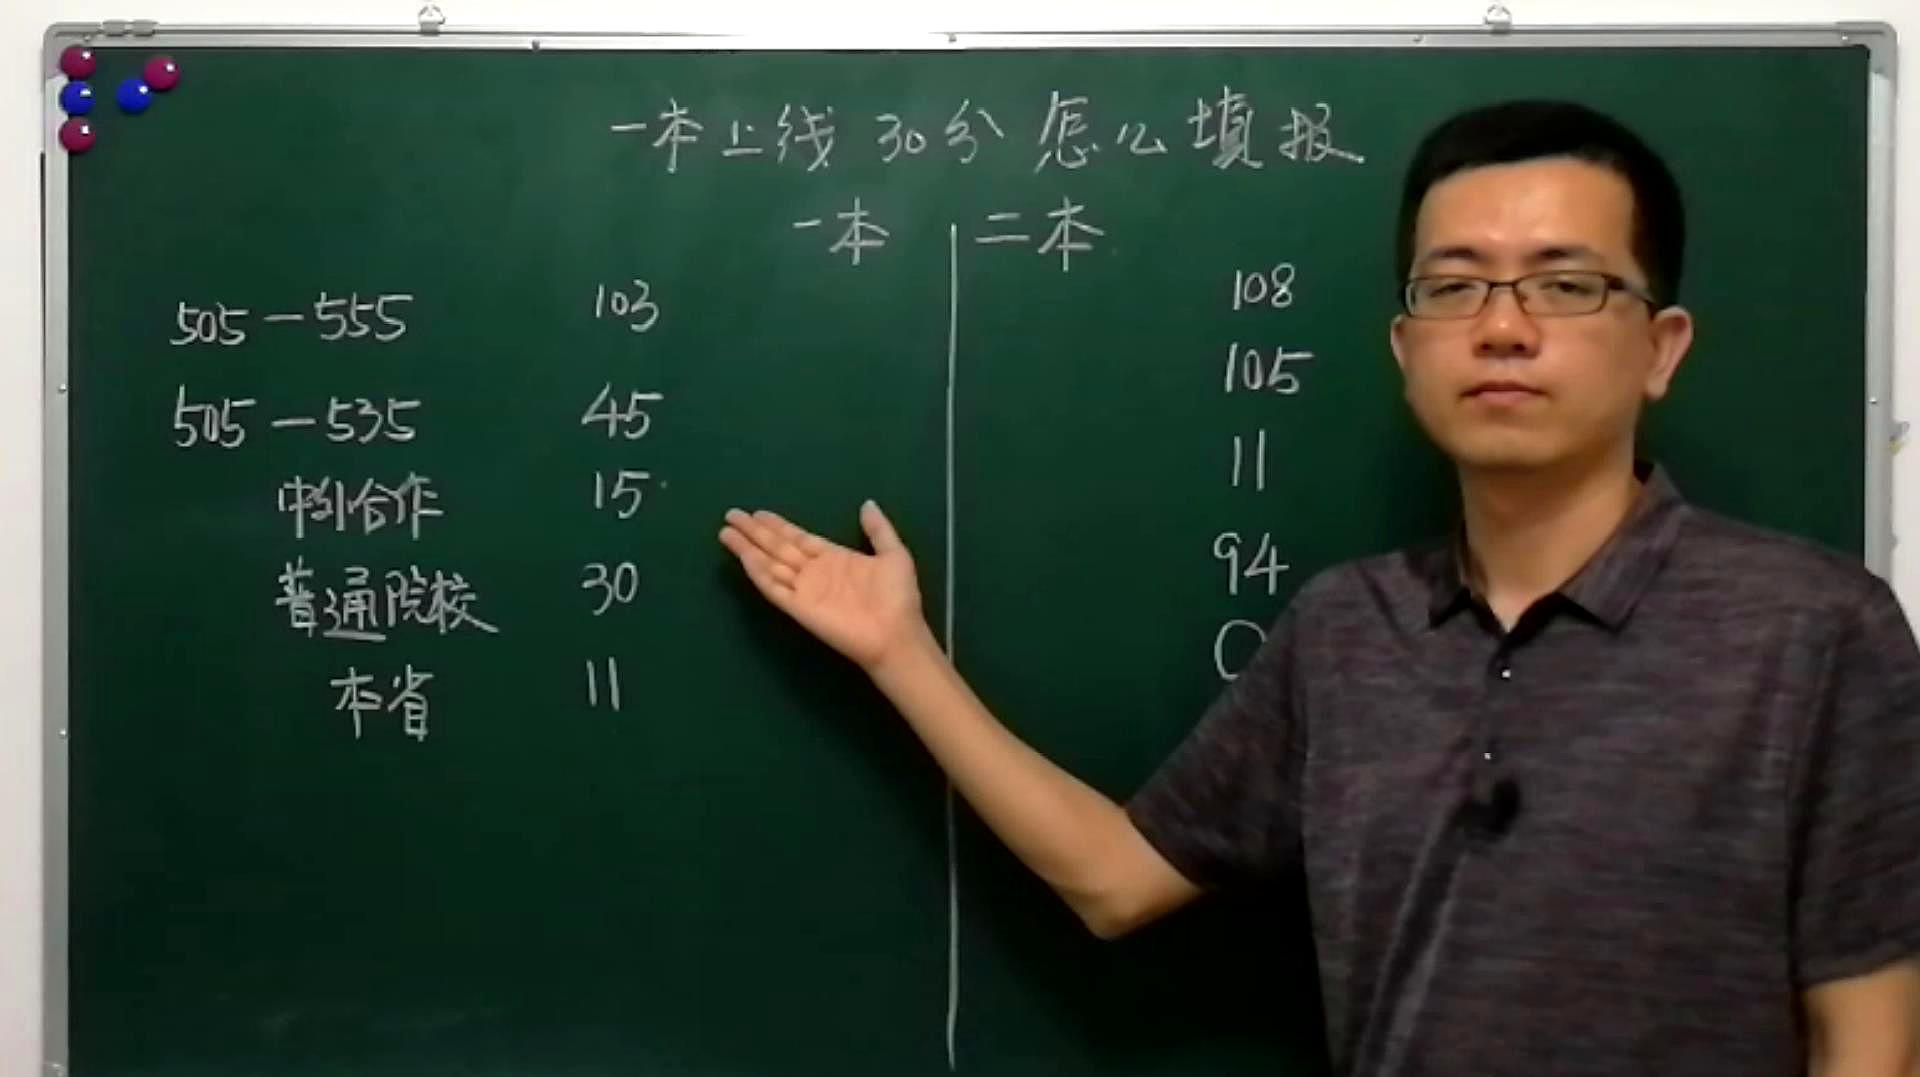 一本上线 30分 怎么填报
一本 二本
505-555 103 108
505-535 45 105
中外合作 15 11
普通院校 30 94
本省 11 0